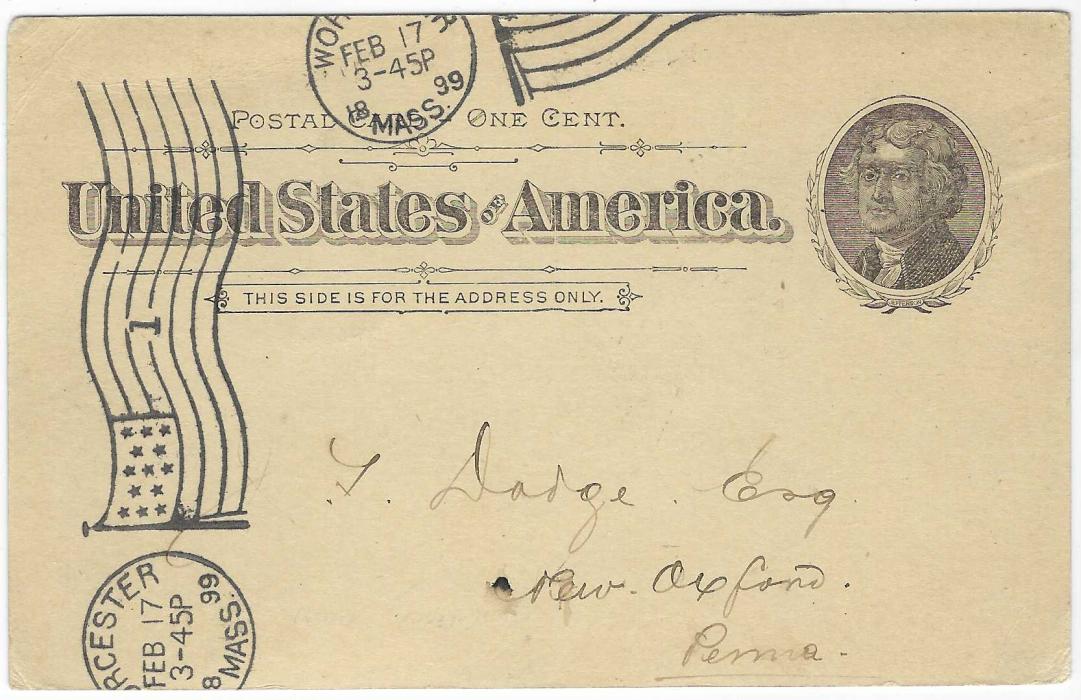 WOR R
FEB 17
3-45P
18 99
MASS.
POSTAL CARD ONE CENT.
United States OF America.
JEFFERSON
THIS SIDE IS FOR THE ADDRESS ONLY.
1
T. Dodge Esq
New Oxford.
Penna.
RCESTER
FEB 17
3-45P
8 99
MASS.